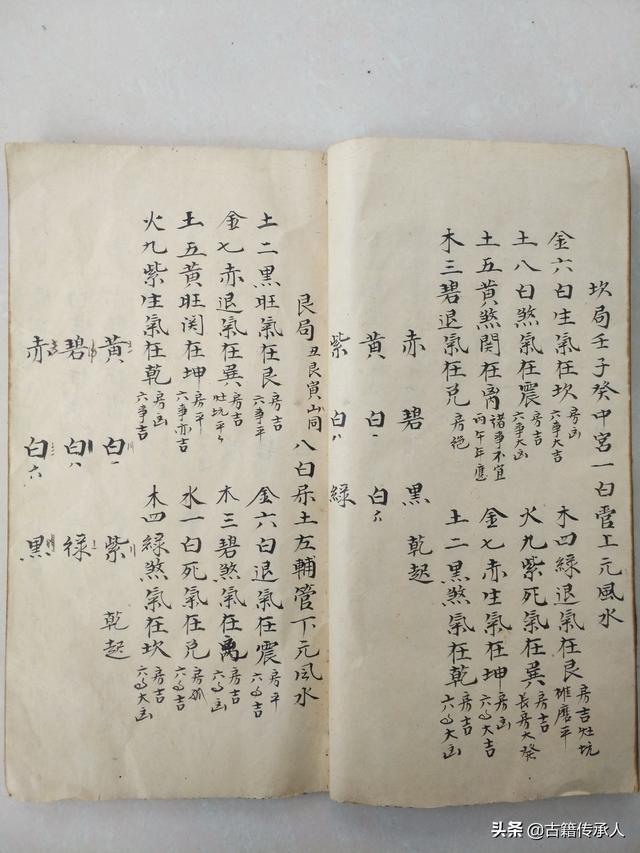 坎局壬子癸中宮一白管上元風水
金六白生氣在坎 房凶 六事大吉
木四綠退氣在艮 房吉灶坑 碓磨平
土八白煞氣在震 房吉 六事大凶
火九紫死氣在巽 房吉 長房大發
土五黃煞関在离 諸事不宜 丙午年應
金七赤生氣在坤 房凶 六事大吉
木三碧退氣在兌 房絕
土二黑煞氣在乾 房吉 六事大凶
赤 碧 黑 乾起
黃 白一 白六
紫 白八 綠
艮局 丑艮寅山同 八白屬土左輔管下元風水
土二黑旺氣在艮 房吉 六事平
金六白退氣在震 房平 六事吉
金七赤退氣在巽 房吉 灶坑平
木三碧煞氣在离 房吉 六事凶
土五黃旺関在坤 房平 六事亦吉
水一白死氣在兌 房孤 六事凶
火九紫生氣在乾 房凶 六事吉
木四綠煞氣在坎 房吉 六事大凶
黃 白一 紫 乾起
碧 白八 綠
赤 白六 黑
头条 @古籍传承人